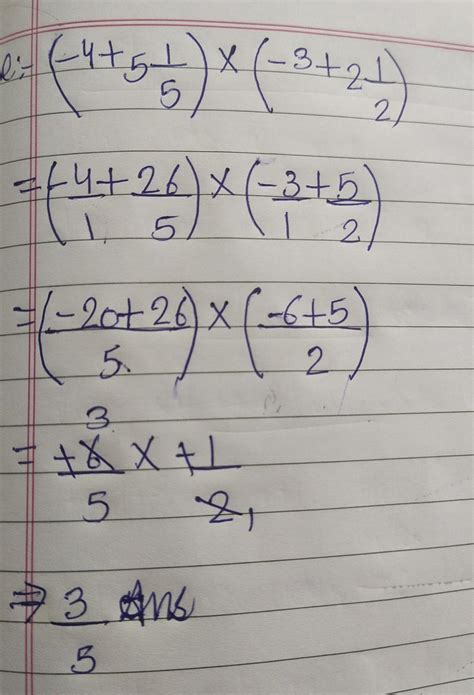 e:- (-4+5 1/5) × (-3+2 1/2)
= (-4/1 + 26/5) × (-3/1 + 5/2)
= (-20+26/5) × (-6+5/2)
3
= +6/5 × +1/2 1
⇒ 3/5 Ans